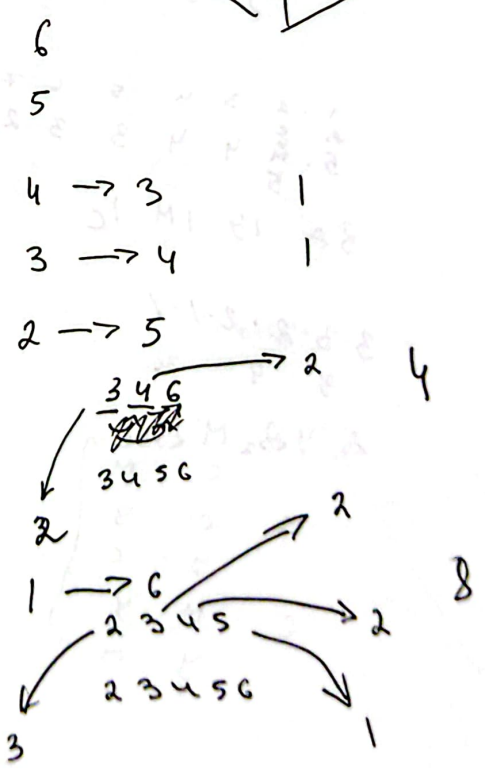 6
5
4 → 3 1
3 → 4 1
2 → 5
3 4 6 → 2 4
3 4 5 6
2
1 → 6 2
2 3 4 5 2 8
2 3 4 5 6
3 1